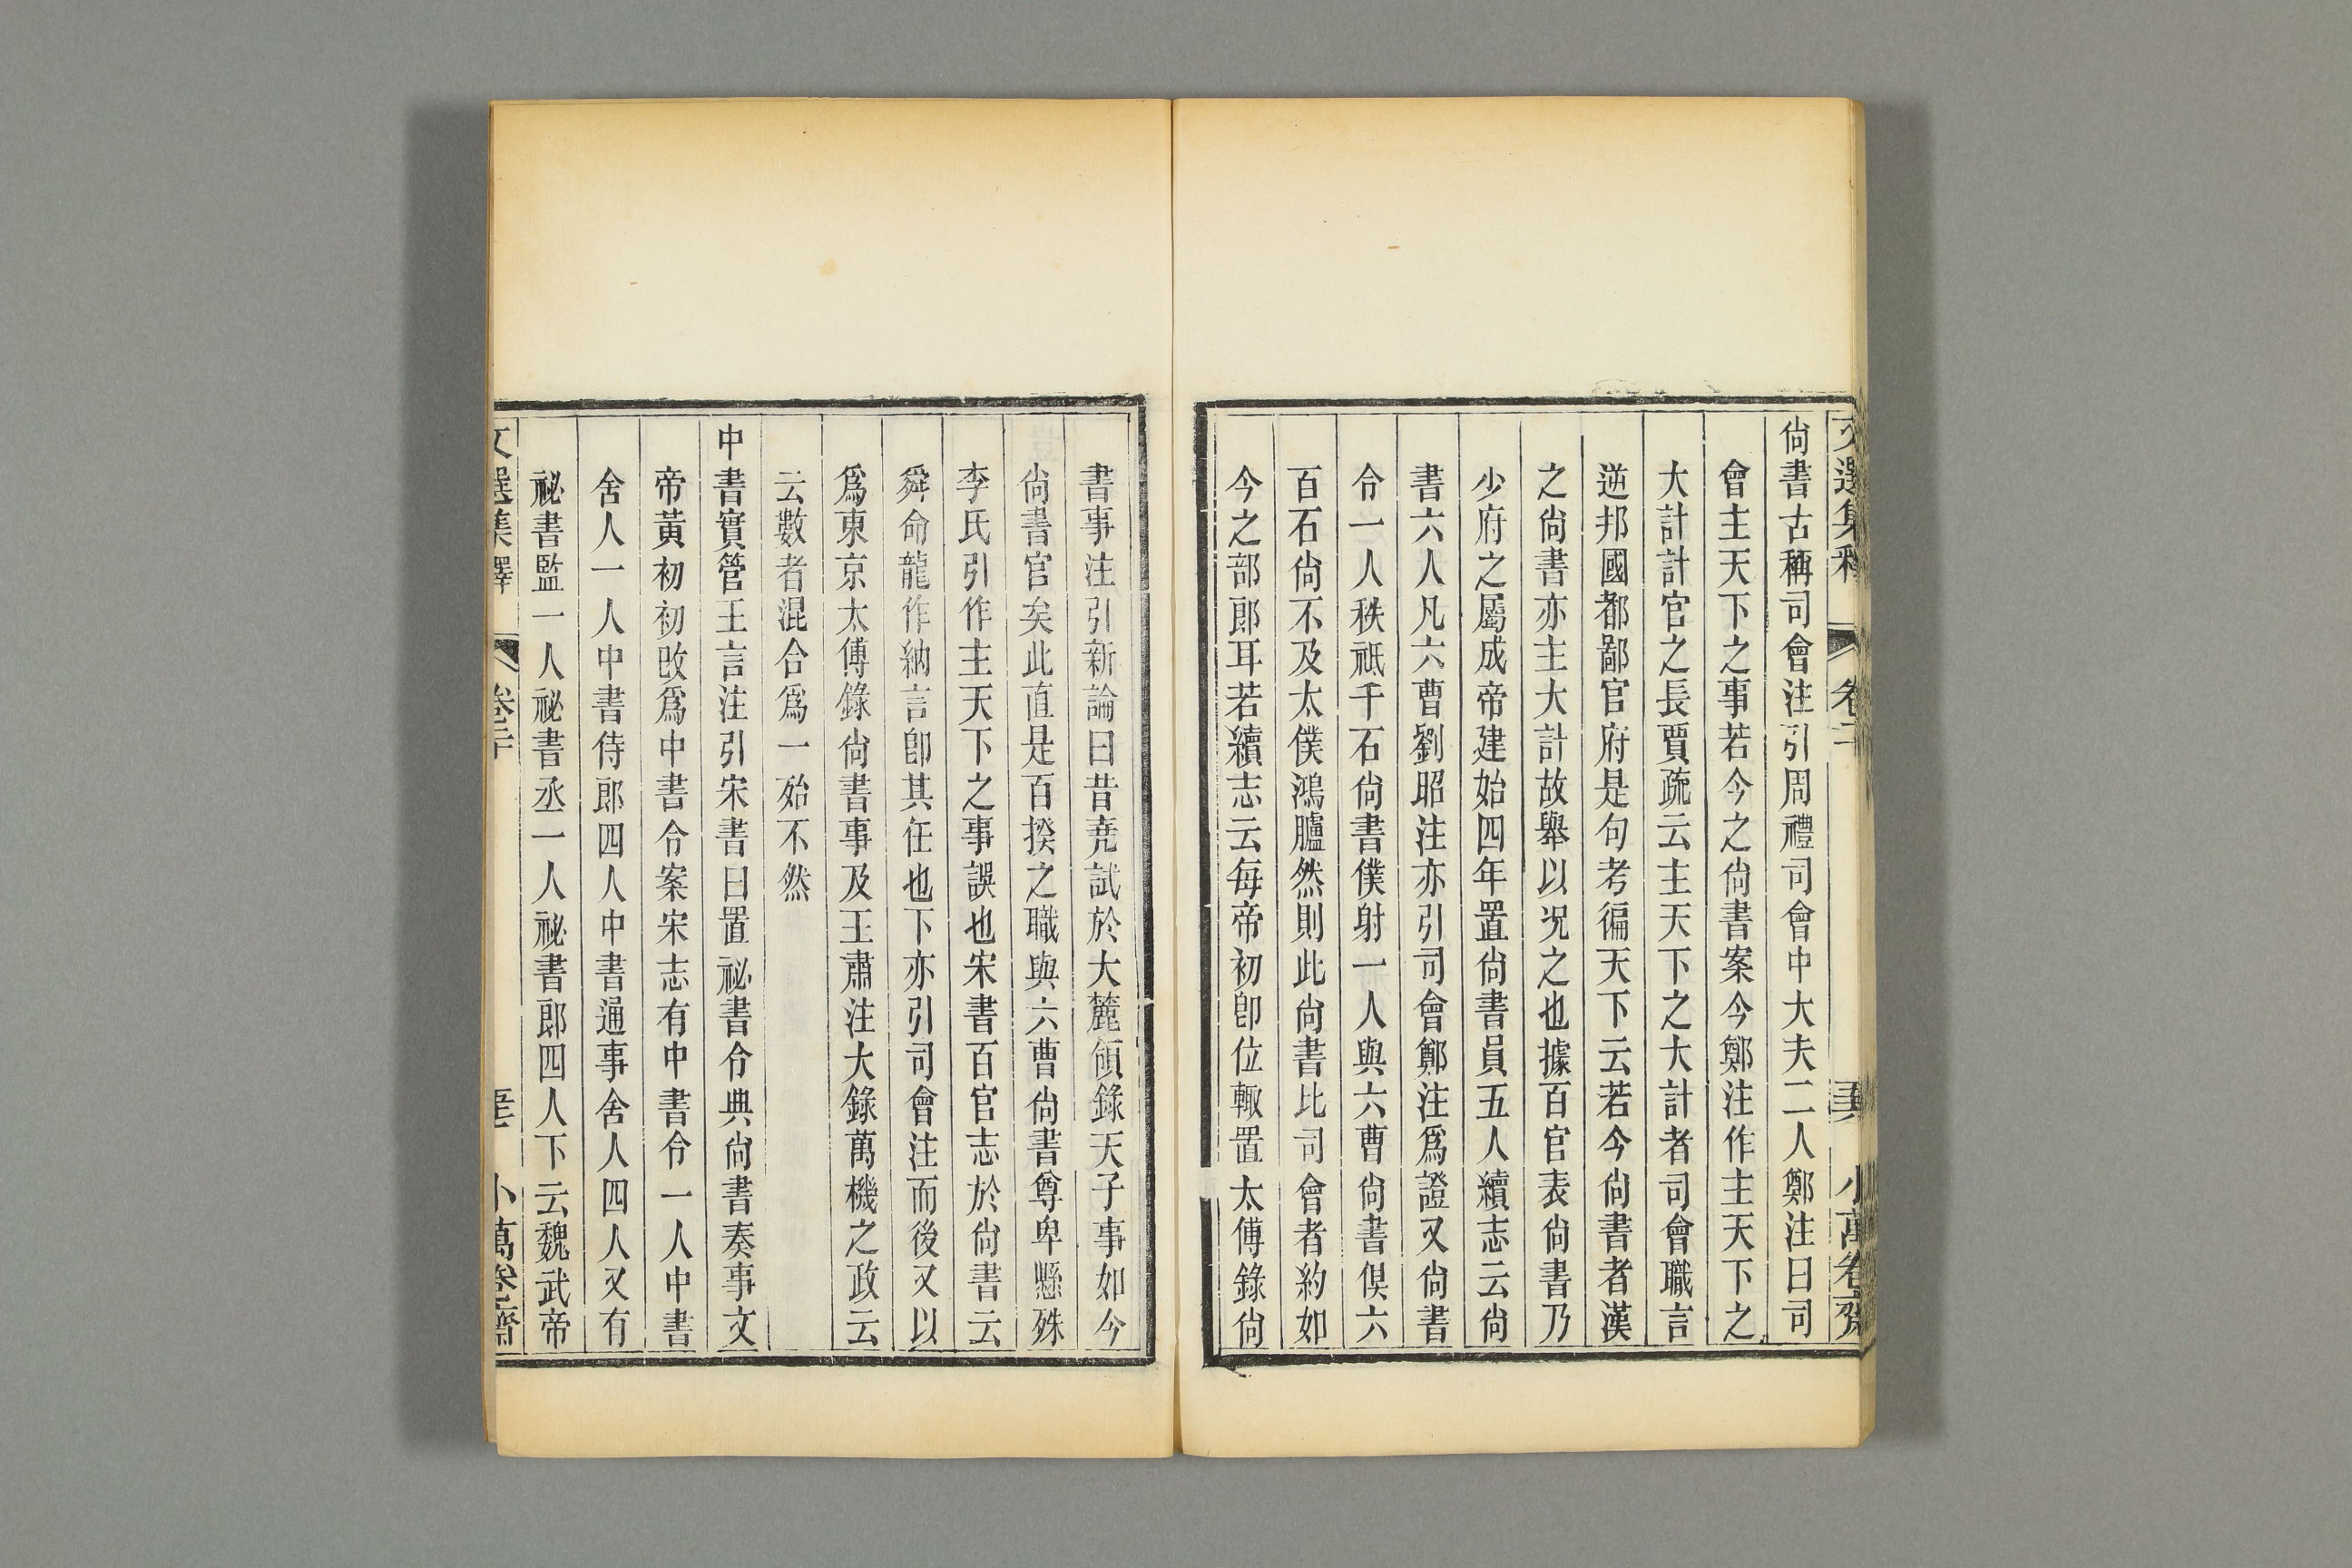 尙書古稱司會注引周禮司會中大夫二人鄭注曰司
會主天下之事若今之尙書案今鄭注作主天下之
大計計官之長賈疏云主天下之大計者司會職言
逆邦國都鄙官府是句考徧天下云若今尙書者漢
之尙書亦主大計故舉以况之也據百官表尙書乃
少府之屬成帝建始四年置尙書員五人續志云尙
書六人凡六曹劉昭注亦引司會鄭注爲證又尙書
令一人秩祗千石尙書僕射一人與六曹尙書俱六
百石尙不及太僕鴻臚然則此尙書比司會者約如
今之部郎耳若續志云每帝初卽位輙置太傅錄尙
書事注引新論曰昔堯試於大麓領錄天子事如今
尙書官矣此直是百揆之職與六曹尙書尊卑懸殊
李氏引作主天下之事誤也宋書百官志於尙書云
舜命龍作納言卽其任也下亦引司會注而後又以
爲東京太傅錄尙書事及王肅注大錄萬機之政云
云數者混合爲一殆不然
中書實管王言注引宋書曰置祕書令典尙書奏事文
帝黃初初改爲中書令案宋志有中書令一人中書
舍人一人中書侍郎四人中書通事舍人四人又有
祕書監一人祕書丞一人祕書郎四人下云魏武帝
文選集釋
卷二十
小萬卷齋